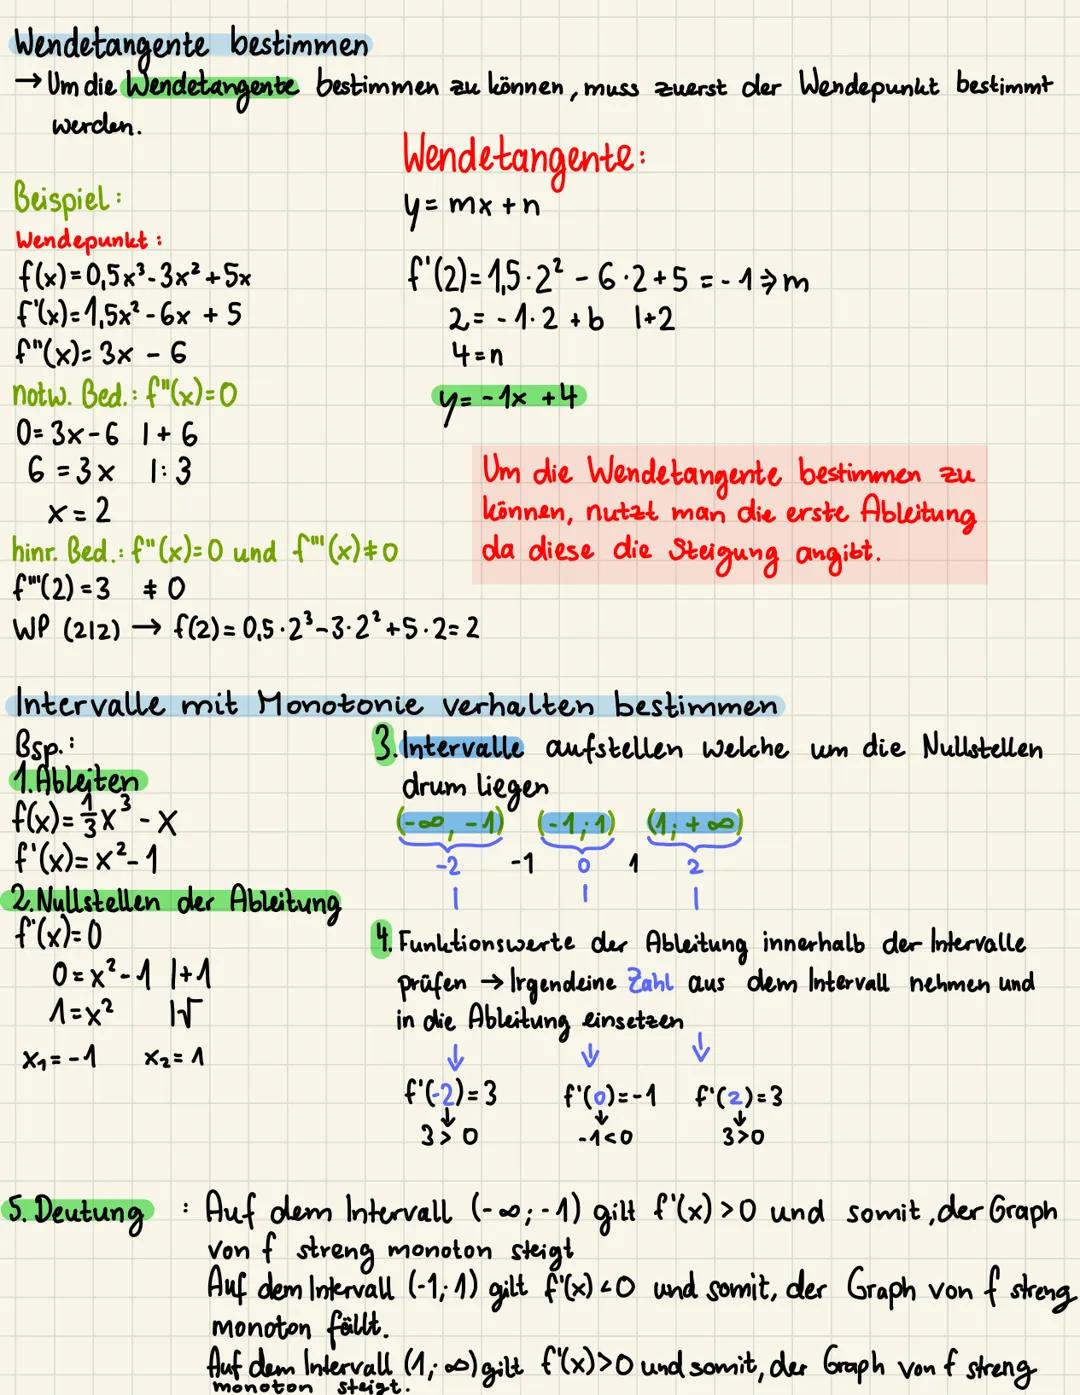 Wendetangente bestimmen
→ Um die Wendetangente bestimmen zu können, muss zuerst der Wendepunkt bestimmt
werden.
Beispiel:
Wendepunkt:
f(x)=0,5x³-3x²+5x
f'(x)=1,5x²-6x + 5
f"(x)= 3x - 6
notw. Bed.: f"(x)=0
0=3x-6 |+6
6=3x |:3
x=2
hinr. Bed.: f"(x)=0 und f"'(x)≠0
f"'(2)=3 ≠0
WP (2|2) → f(2)=0,5·2³-3·2²+5·2=2
Wendetangente:
y=mx+n
f'(2)=1,5·2²-6·2+5=-1⇒m
2=-1·2+b |+2
4=n
y=-1x+4
Um die Wendetangente bestimmen zu
können, nutzt man die erste Ableitung
da diese die Steigung angibt.
Intervalle mit Monotonie verhalten bestimmen
Bsp.:
1.Ableiten
f(x)=1/3x³-x
f'(x)=x²-1
2.Nullstellen der Ableitung
f'(x)=0
0=x²-1 |+1
1=x² |√
x₁=-1 x₂=1
3.Intervalle aufstellen welche um die Nullstellen
drum liegen
(-∞,-1) (-1;1) (1;+∞)
-2 -1 0 1 2
4.Funktionswerte der Ableitung innerhalb der Intervalle
prüfen → Irgendeine Zahl aus dem Intervall nehmen und
in die Ableitung einsetzen
↓ ↓ ↓
f'(-2)=3 f'(0)=-1 f'(2)=3
↓ ↓ ↓
3>0 -1<0 3>0
5.Deutung : Auf dem Intervall (-∞;-1) gilt f'(x)>0 und somit,der Graph
von f streng monoton steigt
Auf dem Intervall (-1;1) gilt f'(x)<0 und somit, der Graph von f streng
monoton fällt.
Auf dem Intervall (1;∞) gilt f'(x)>0 und somit, der Graph von f streng
monoton steigt.